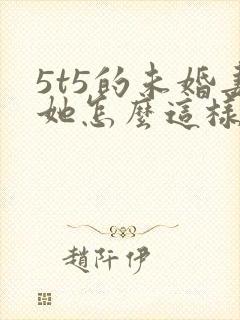 5t5的未婚妻
她怎麼這樣
趙阡伊